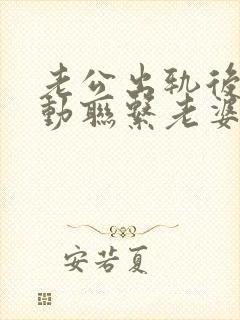 老公出轨後
動聯繫老婆
安若夏